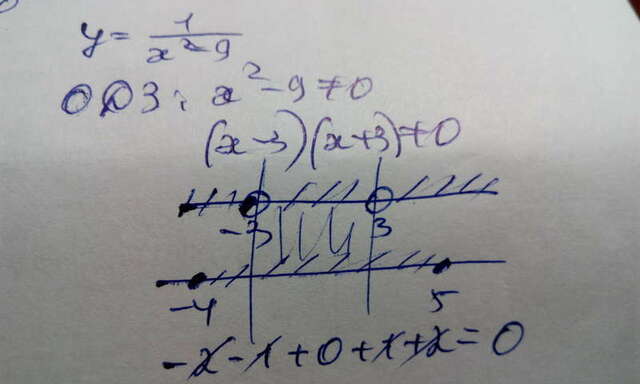 y = 1/(x²-9)
ООЗ: x²-9≠0
(x-3)(x+3)≠0
-3 3
-4 5
-x-x+0+x+x=0